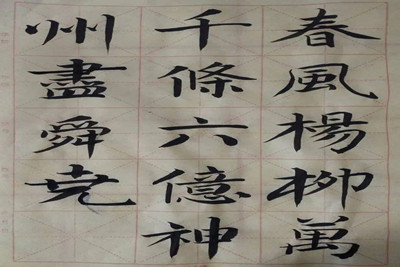 春風楊柳萬
千條六億神
州盡舜尭